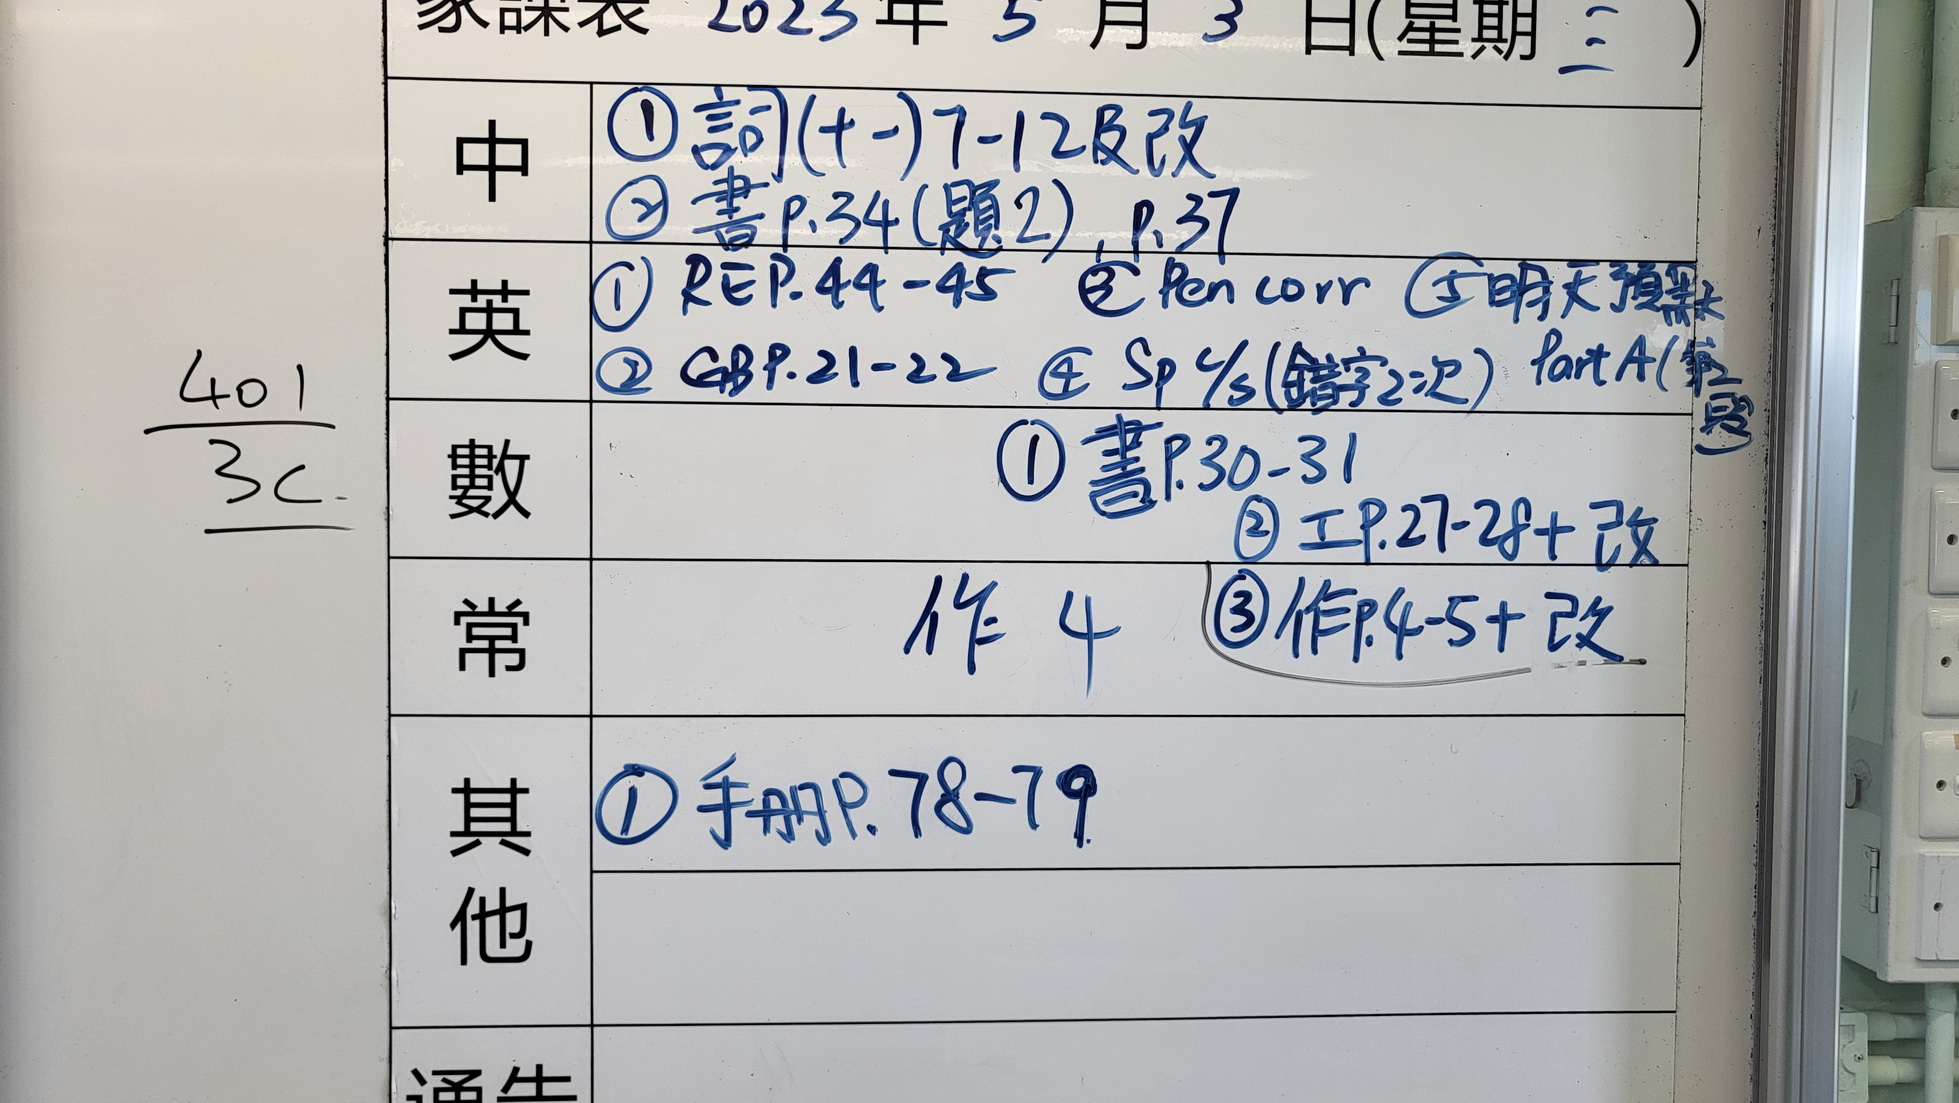 家課表 2023 年 5 月 3 日(星期 三 )
中
① 詞(十一)7-12及改
② 書 P.34(題2), P.37
英
① RE P.44-45 ③ Pen corr ⑤ 明天預默
② GB P.21-22 ④ Sp c/s (錯字2次) Part A (第二段)
數
① 書P.30-31
② 工P.27-28+改
常
作 4 ③ 作P.4-5+改
其他
① 手册P.78-79
通告
401
3C.